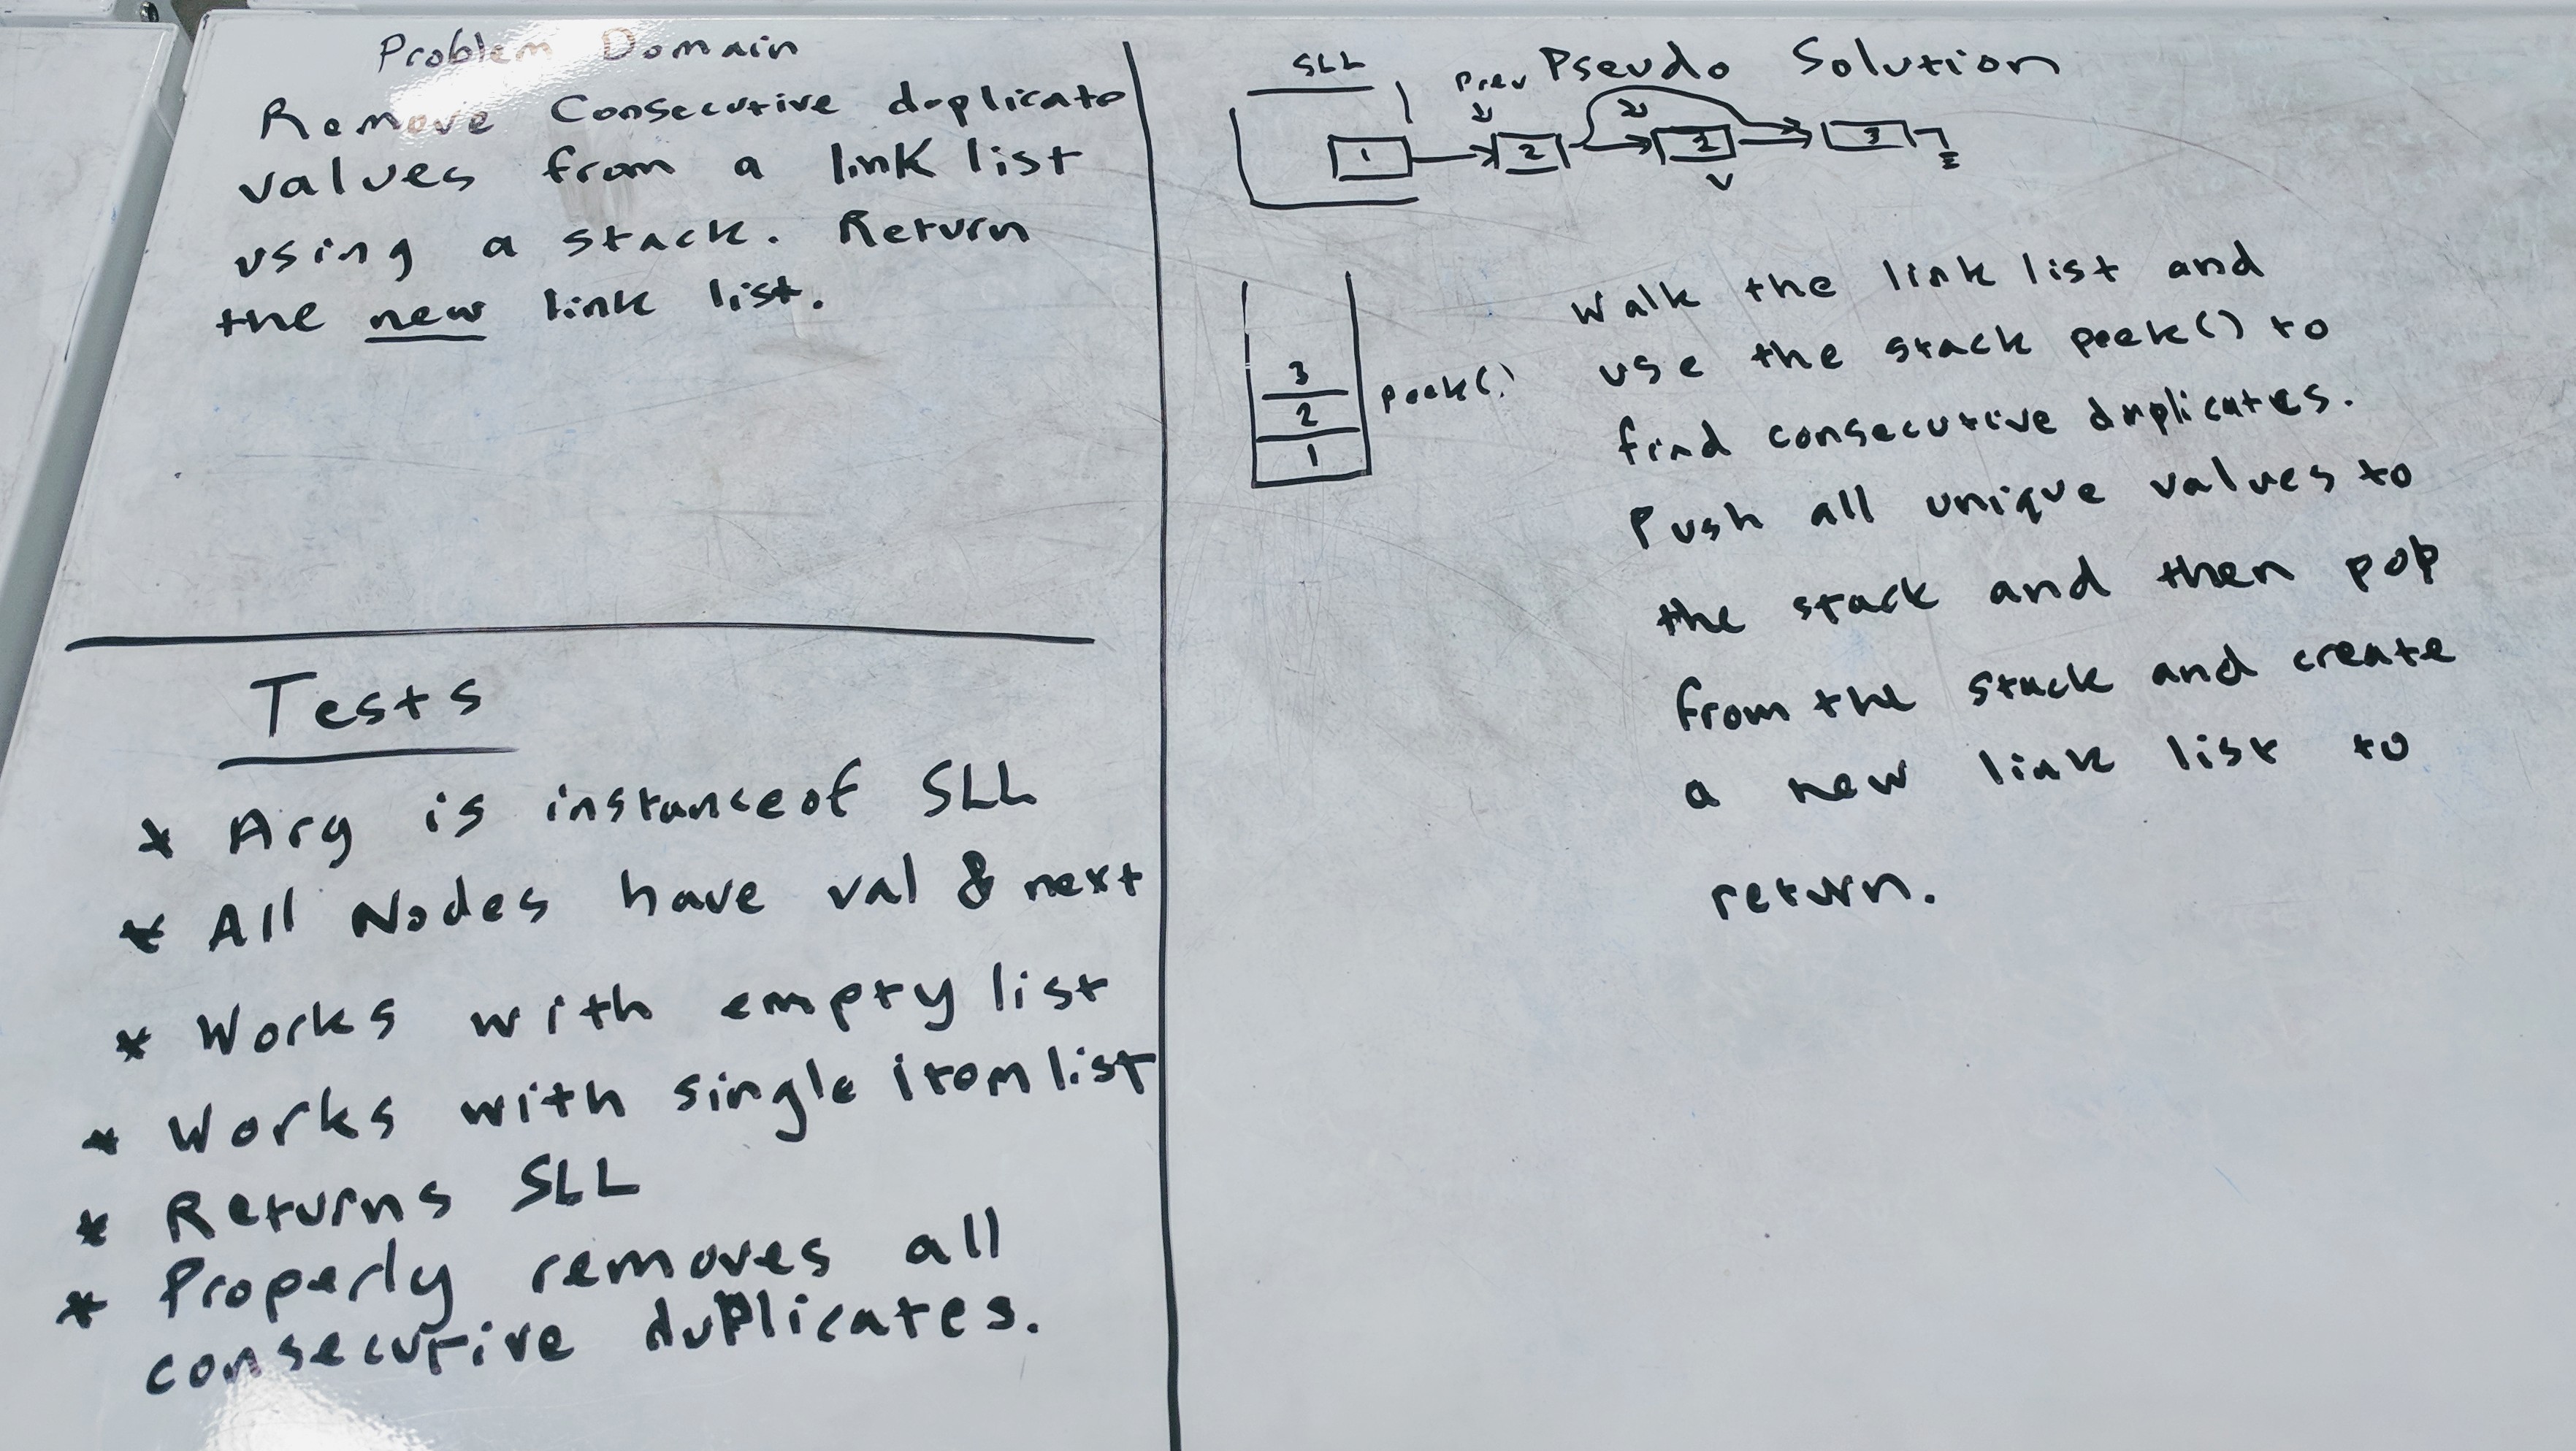 Problem Domain
Remove Consecutive duplicate
values from a link list
using a stack. Return
the new link list.
Tests
* Arg is instanceof SLL
* All Nodes have val & next
* Works with empty list
* Works with single item list
* Returns SLL
* Properly removes all
consecutive duplicates.
Pseudo Solution
SLL
Prev
1 2 2 3
3
2
1
peek()
Walk the link list and
use the stack peek() to
find consecutive duplicates.
Push all unique values to
the stack and then pop
from the stack and create
a new link list to
return.